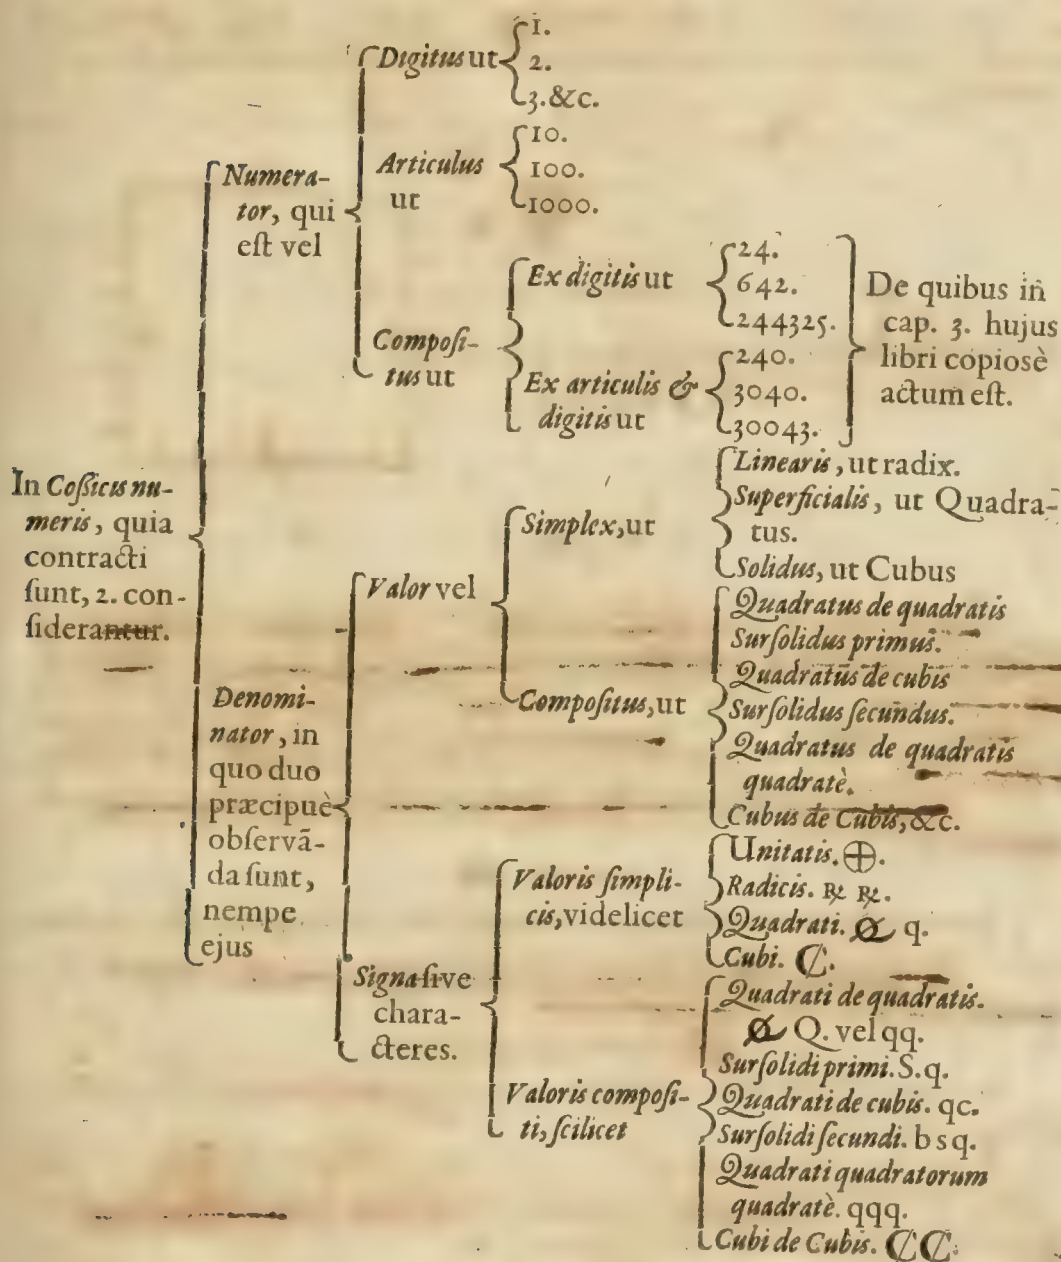 In Cossicis nu-
meris, quia
contracti
sunt, 2. con-
siderantur.
Numera-
tor, qui
est vel
Digitus ut
1.
2.
3. &c.
Articulus
ut
10.
100.
1000.
Composi-
tus ut
Ex digitis ut
24.
642.
244325.
Ex articulis &
digitis ut
240.
3040.
30043.
De quibus in
cap. 3. hujus
libri copiosè
actum est.
Denomi-
nator, in
quo duo
præcipuè
observā-
da sunt,
nempe
ejus
Valor vel
Simplex, ut
Linearis, ut radix.
Superficialis, ut Quadra-
tus.
Solidus, ut Cubus
Compositus, ut
Quadratus de quadratis
Sursolidus primus.
Quadratus de cubis
Sursolidus secundus.
Quadratus de quadratis
quadratè.
Cubus de Cubis, &c.
Signa sive
chara-
cteres.
Valoris simpli-
cis, videlicet
Unitatis. ⊕.
Radicis. ℞ ℞.
Quadrati. Q q.
Cubi. ₡.
Valoris composi-
ti, scilicet
Quadrati de quadratis.
Q Q. vel qq.
Sursolidi primi. S. q.
Quadrati de cubis. qc.
Sursolidi secundi. b s q.
Quadrati quadratorum
quadratè. qqq.
Cubi de Cubis. ₡₡.